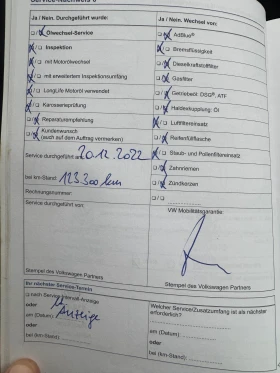 Service-Nachweis 6
Ja / Nein. Durchgeführt wurde:
Ölwechsel-Service
Inspektion
mit Motorölwechsel
mit erweitertem Inspektionsumfang
LongLife Motoröl verwendet
Karosserieprüfung
Reparaturempfehlung
Kundenwunsch
(auch auf dem Auftrag vermerken)
Service durchgeführt am: 20.12.2022
bei km-Stand: 123.300 km
Rechnungsnummer:
Service durchgeführt von:
Stempel des Volkswagen Partners
Ja / Nein. Wechsel von:
AdBlue®
Bremsflüssigkeit
Dieselkraftstofffilter
Gasfilter
Getriebeöl: DSG®, ATF
Haldexkupplung: Öl
Luftfiltereinsatz
Reifenfüllflasche
Staub- und Pollenfiltereinsatz
Zahnriemen
Zündkerzen
VW Mobilitätsgarantie:
Stempel des Volkswagen Partners
Ihr nächster Service-Termin
nach Service-Intervall-Anzeige
oder Anzeige
am (Datum):
oder
bei (km-Stand):
Welcher Service/Zusatzumfang ist als nächster
erforderlich?
am (Datum):
oder
bei (km-Stand):